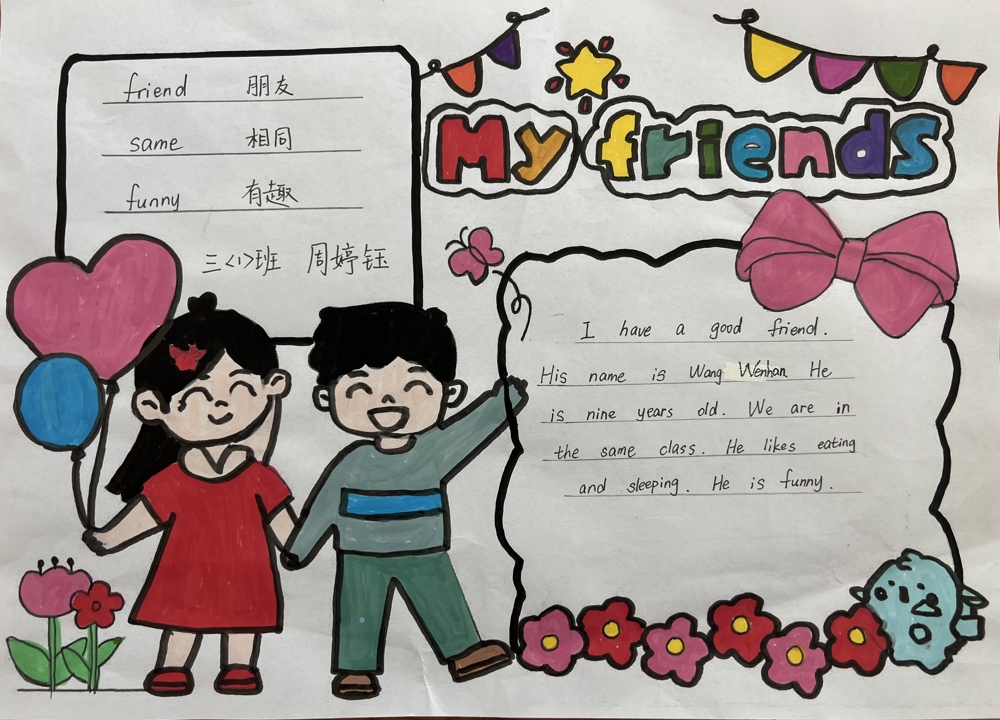 My friends
friend 朋友
same 相同
funny 有趣
三<1>班 周婷钰
I have a good friend.
His name is Wang Wenhan. He
is nine years old. We are in
the same class. He likes eating
and sleeping. He is funny.